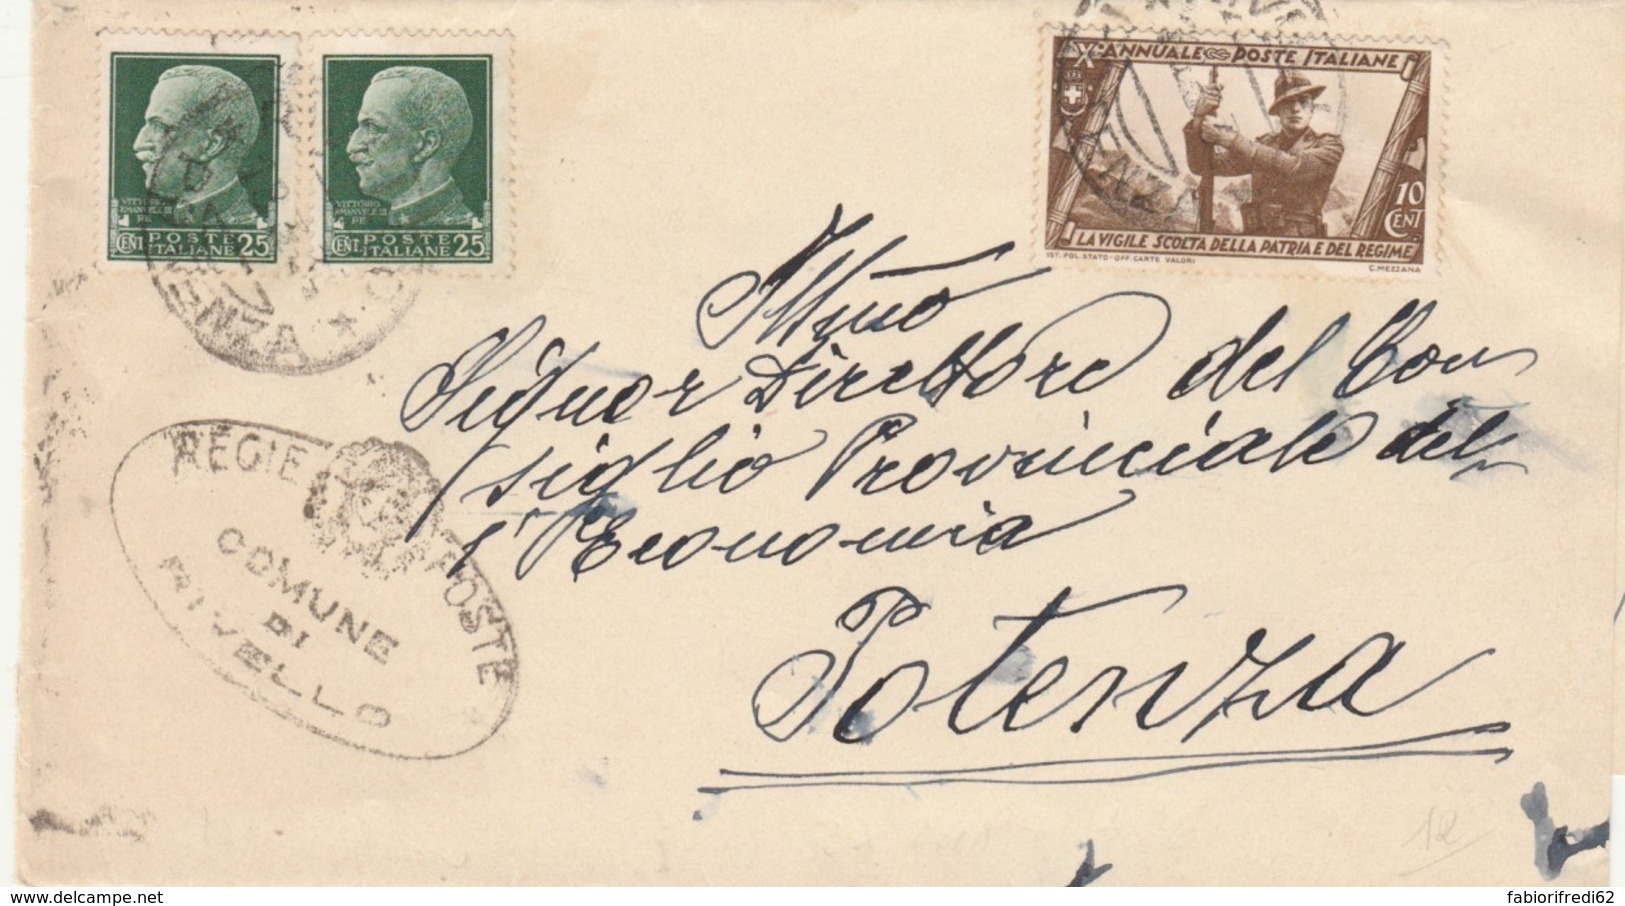 VITTORIO
EMANVELE III
RE
CENT POSTE
ITALIANE 25
VITTORIO
EMANVELE III
RE
CENT POSTE
ITALIANE 25
X° ANNUALE POSTE ITALIANE
10
CENT
LA VIGILE SCOLTA DELLA PATRIA E DEL REGIME
IST. POL. STATO - OFF. CARTE VALORI C. MEZZANA
ENZA *
REGIE POSTE
COMUNE
DI
RIVELLO
Illmo
Signor Direttore del Con
siglio Provinciale del-
l'Economia
Potenza
12
fabiorifredi62